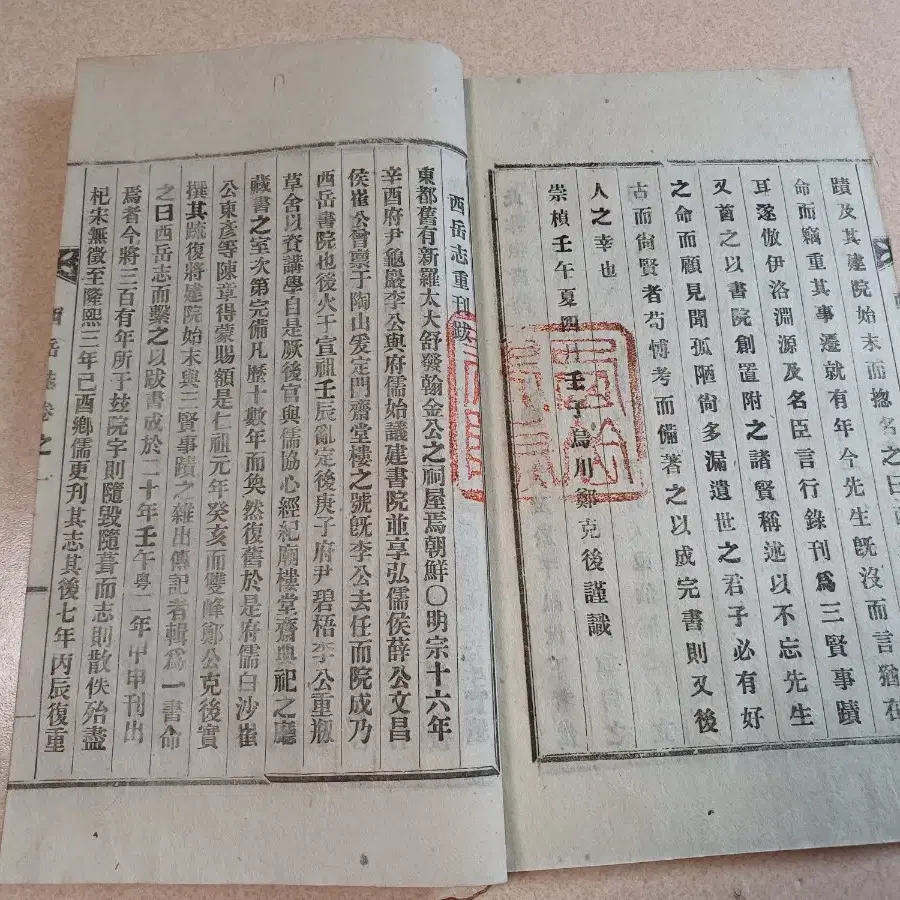 蹟及其建院始末而揔名之曰西
命而竊重其事遷就有年今先生旣沒而言猶在
耳遂倣伊洛淵源及名臣言行錄刊爲三賢事蹟
又首之以書院創置附之諸賢稱述以不忘先生
之命而顧見聞孤陋尙多漏遺世之君子必有好
古而尙賢者苟博考而備著之以成完書則又後
人之幸也
崇禎壬午夏四月壬子烏川鄭克後謹識
西岳志重刊跋
東都舊有新羅太大舒發翰金公之祠屋焉朝鮮〇明宗十六年
辛酉府尹龜巖李公與府儒始議建書院並享弘儒侯薛公文昌
侯崔公曾稟于陶山爰定門齋堂樓之號旣李公去任而院成乃
西岳書院也後火于宣祖壬辰亂定後庚子府尹碧梧李公重瓶
草舍以資講學自是厥後官與儒協心經紀廟樓堂齋典祀之廳
藏書之室次第完備凡歷十數年而奐然復舊於是府儒白沙崔
公東彥等陳章得蒙賜額是仁祖元年癸亥而雙峰鄭公克後實
撰其疏復將建院始末與三賢事蹟之雜出傳記者輯爲一書命
之曰西岳志而繫之以跋書成於二十年壬午粤二年甲申刊出
焉者今將三百有年所于玆院宇則隨毀隨葺而志則散佚殆盡
杞宋無徵至隆熙三年己酉鄕儒更刊其志其後七年丙辰復重
西岳志 卷之一